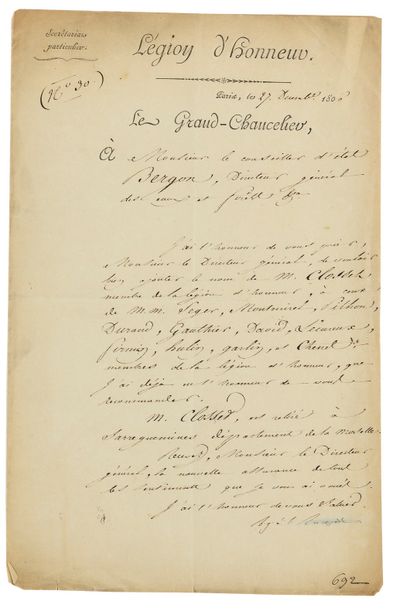 Secrétariat
particulier.
Légion d'Honneur.
(N.º 30)
Paris, le 27. Décembre 1806
Le Grand-Chancelier,
À Monsieur le conseiller d'état
Bergon, Directeur général
des eaux et forêts &a
J'ai l'honneur de vous prier,
Monsieur le Directeur général, de vouloir
bien ajouter le nom de M. Closset
membre de la légion d'honneur, à ceux
de M.M. Leger, Montmirel, Pithou,
Durand, Gaulthier, David,
firmin, hulin, garlin, et Chenel
membres de la légion d'honneur, que
j'ai déjà eu l'honneur de vous
recommander.
M. Closset, est retiré à
Sarreguemines département de la Moselle.
Recevez, Monsieur le Directeur
général, la nouvelle assurance de tous
les sentimens que je vous ai voués.
J'ai l'honneur de vous saluer.
692